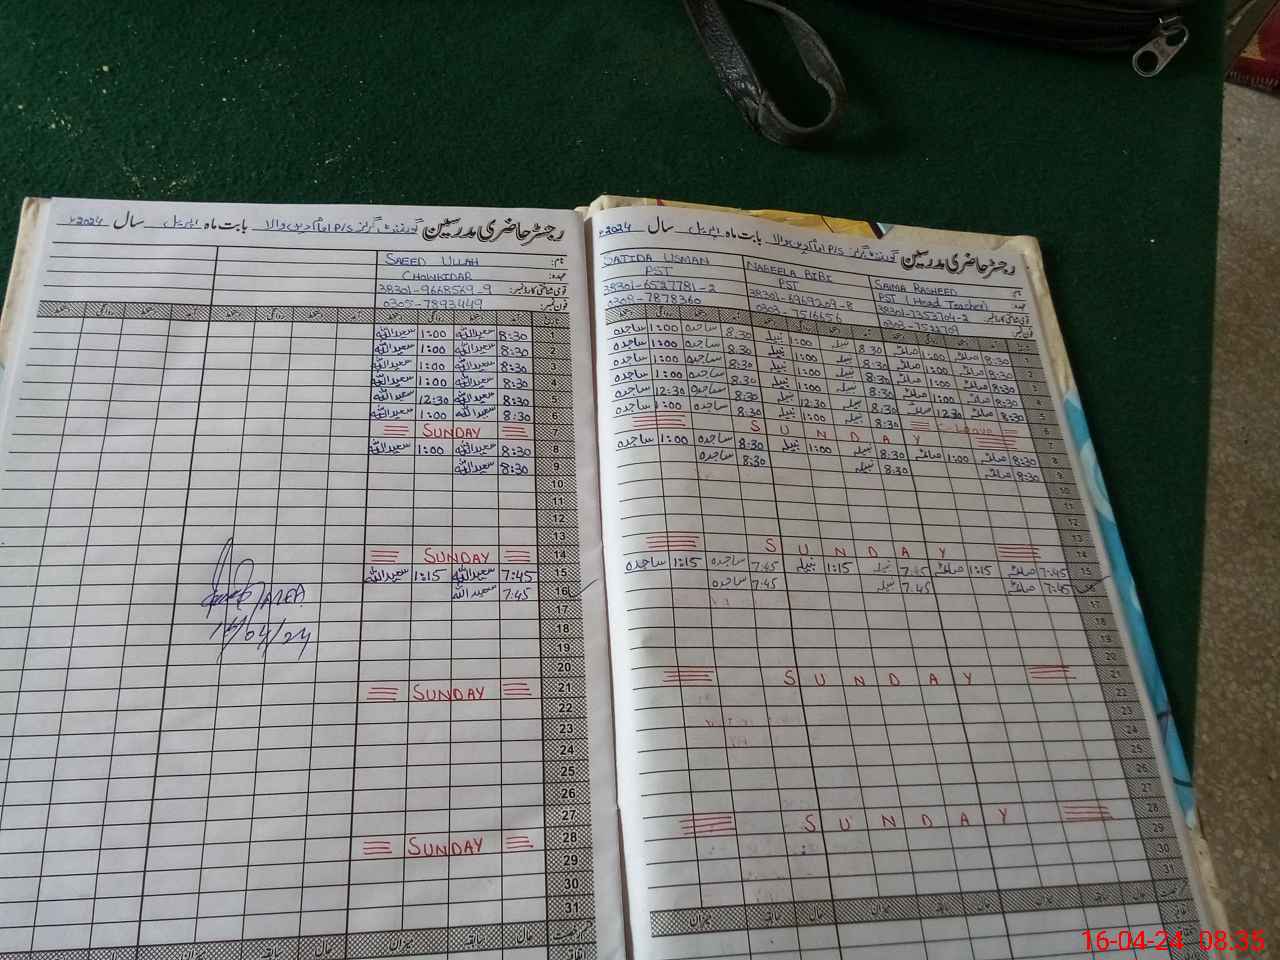 رجسٹر حاضری مدرسین گورنمنٹ گرلز P/S امام دین والا بابت ماہ اپریل سال 2024ء
نام: SAEED ULLAH
عہدہ: CHOWKIDAR
قومی شناختی کارڈ نمبر: 38301-9668569-9
فون نمبر: 0305-7893449
1 8:30 سعیداللہ 1:00 سعیداللہ
2 8:30 سعیداللہ 1:00 سعیداللہ
3 8:30 سعیداللہ 1:00 سعیداللہ
4 8:30 سعیداللہ 1:00 سعیداللہ
5 8:30 سعیداللہ 12:30 سعیداللہ
6 8:30 سعیداللہ 1:00 سعیداللہ
7 SUNDAY
8 8:30 سعیداللہ 1:00 سعیداللہ
9 8:30 سعیداللہ
10
11
12
13
14 SUNDAY
15 7:45 سعیداللہ 1:15 سعیداللہ
16 7:45 سعیداللہ
17
18
19
20
21 SUNDAY
22
23
24
25
26
27
28 SUNDAY
29
30
31
حال سابقہ میزان حال سابقہ میزان
رجسٹر حاضری مدرسین گورنمنٹ گرلز P/S امام دین والا بابت ماہ اپریل سال 2024ء
نام SAIMA RASHEED NABEELA BIBI SAJIDA USMAN
PST (Head Teacher) PST PST
قومی شناختی کارڈ نمبر 38301-7353704-2 38301-6969209-8 38301-6527781-2
فون نمبر 0303-7522709 0303-7516656 0308-7878360
1 8:30 صائمہ 1:00 صائمہ 8:30 نبیلہ 1:00 نبیلہ 8:30 ساجدہ 1:00 ساجدہ
2 8:30 صائمہ 1:00 صائمہ 8:30 نبیلہ 1:00 نبیلہ 8:30 ساجدہ 1:00 ساجدہ
3 8:30 صائمہ 1:00 صائمہ 8:30 نبیلہ 1:00 نبیلہ 8:30 ساجدہ 1:00 ساجدہ
4 8:30 صائمہ 1:00 صائمہ 8:30 نبیلہ 1:00 نبیلہ 8:30 ساجدہ 1:00 ساجدہ
5 8:30 صائمہ 12:30 صائمہ 8:30 نبیلہ 12:30 نبیلہ 8:30 ساجدہ 12:30 ساجدہ
6 Leave 8:30 نبیلہ 1:00 نبیلہ 8:30 ساجدہ 1:00 ساجدہ
7 SUNDAY
8 8:30 صائمہ 1:00 صائمہ 8:30 نبیلہ 1:00 نبیلہ 8:30 ساجدہ 1:00 ساجدہ
9 8:30 صائمہ 8:30 نبیلہ 8:30 ساجدہ
10
11
12
13
14 SUNDAY
15 7:45 صائمہ 1:15 صائمہ 7:45 نبیلہ 1:15 نبیلہ 7:45 ساجدہ 1:15 ساجدہ
7:45 صائمہ 7:45 نبیلہ 7:45 ساجدہ
17
18
19
20
21 SUNDAY
22
23
24
25
26
27
28 SUNDAY
29
30
31
حال سابقہ میزان حال سابقہ میزان
16-04-24 08:35